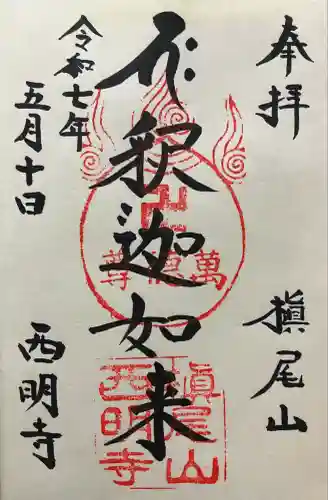 奉拝
槙尾山
釈迦如来
令和七年
五月十日
西明寺
萬德尊
槙尾山
西明寺